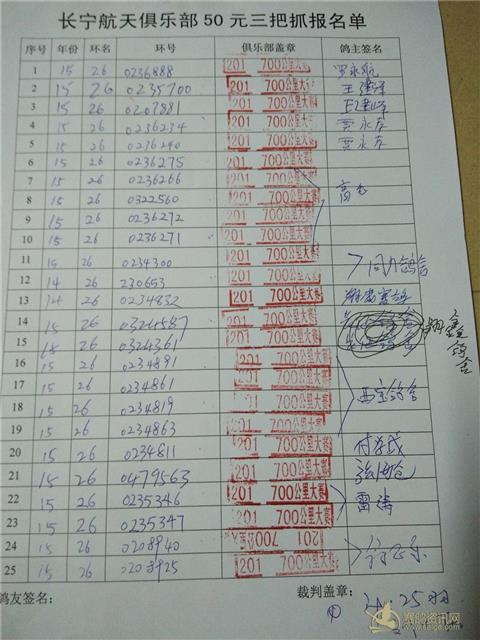 长宁航天俱乐部50元三把抓报名单
序号 年份 环名 环号 俱乐部盖章 鸽主签名
1 15 26 0236888 201 700公里大赛 罗永航
2 15 26 0235700 201 700公里大赛
3 15 26 0207881 201 700公里大赛
4 15 26 0236234 201 700公里大赛 贾永存
5 15 26 0236240 201 700公里大赛 贾永存
6 15 26 0236275 201 700公里大赛
7 15 26 0236266 201 700公里大赛
8 15 26 0322560 201 700公里大赛
9 15 26 0236272 201 700公里大赛
10 15 26 0236271 201 700公里大赛
11 15 26 0234300 201 700公里大赛
12 14 26 230653 201 700公里大赛
13 14 26 0234832 201 700公里大赛
14 15 26 0324587 201 700公里大赛 翔鑫鸽舍
15 15 26 0324361 201 700公里大赛
16 15 26 0234891 201 700公里大赛
17 15 26 0234861 201 700公里大赛
18 15 26 0234819 201 700公里大赛
19 15 26 0234863 201 700公里大赛
20 15 26 0234811 201 700公里大赛
21 15 26 0479563 201 700公里大赛
22 15 26 0235346 201 700公里大赛 雷涛
23 15 26 0235347 201 700公里大赛
24 15 26 0208940 201 700公里大
25 15 26 0208925 201 700公里大赛
鸽友签名： 裁判盖章：
① 25羽
赛鸽资讯网
www.saige.com